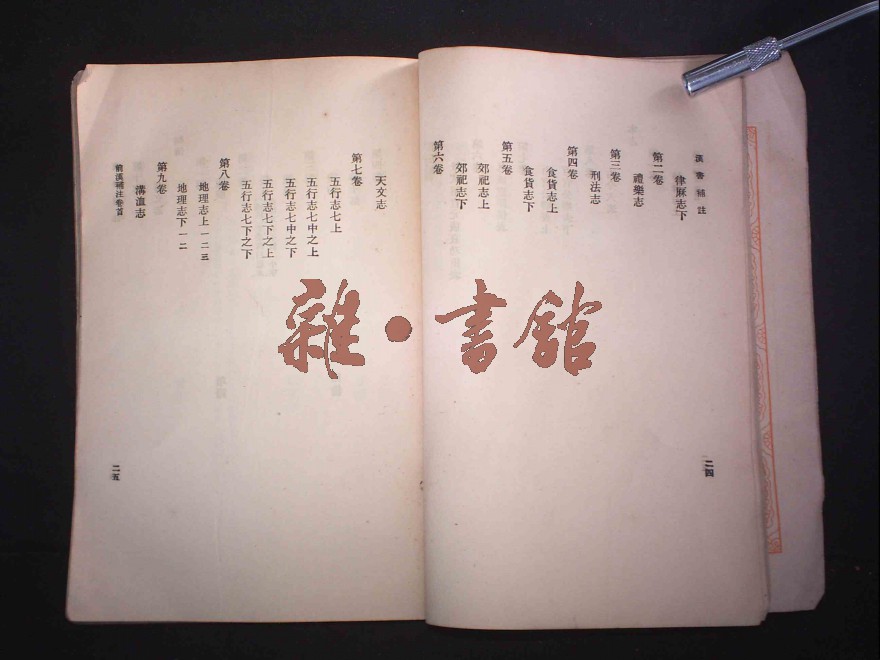 漢書補註
律厤志下
第二卷
禮樂志
第三卷
刑法志
第四卷
食貨志上
食貨志下
第五卷
郊祀志上
郊祀志下
第六卷
二四
天文志
第七卷
五行志七上
五行志七中之上
五行志七中之下
五行志七下之上
五行志七下之下
第八卷
地理志上一二三
地理志下一二
第九卷
溝洫志
前漢補注卷首
二五
雜·書館